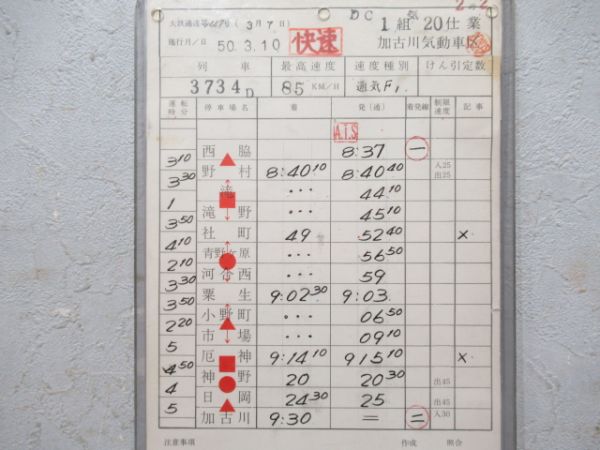 DC 気 2の2
大鉄達 (3月7日) 1組 20仕業
施行月/日 50.3.10 快速 加古川気動車区
列車 最高速度 速度種別 けん引定数
3734D 85 KM/H 通気F1.
運転時分 停車場名 着 発(通) 着発線 制限速度 記事
A.T.S
西脇 8:37 一
3 10
野村 8:40 10 8:40 40 入25 出25
3 30
滝 ... 44 10
1
滝野 ... 45 10
3 50
社町 49 52 40 ×
4 10
青野ヶ原 ... 56 50
2 10
河合西 ... 59
3 30
粟生 9:02 30 9:03.
3 50
小野町 ... 06 50
2 20
市場 ... 09 10
5
厄神 9:14 10 915 10 ×
4 50
神野 20 20 30 出45
4
日岡 24 30 25 出45
5
加古川 9:30 = 二 入30
注意事項 作成 照合